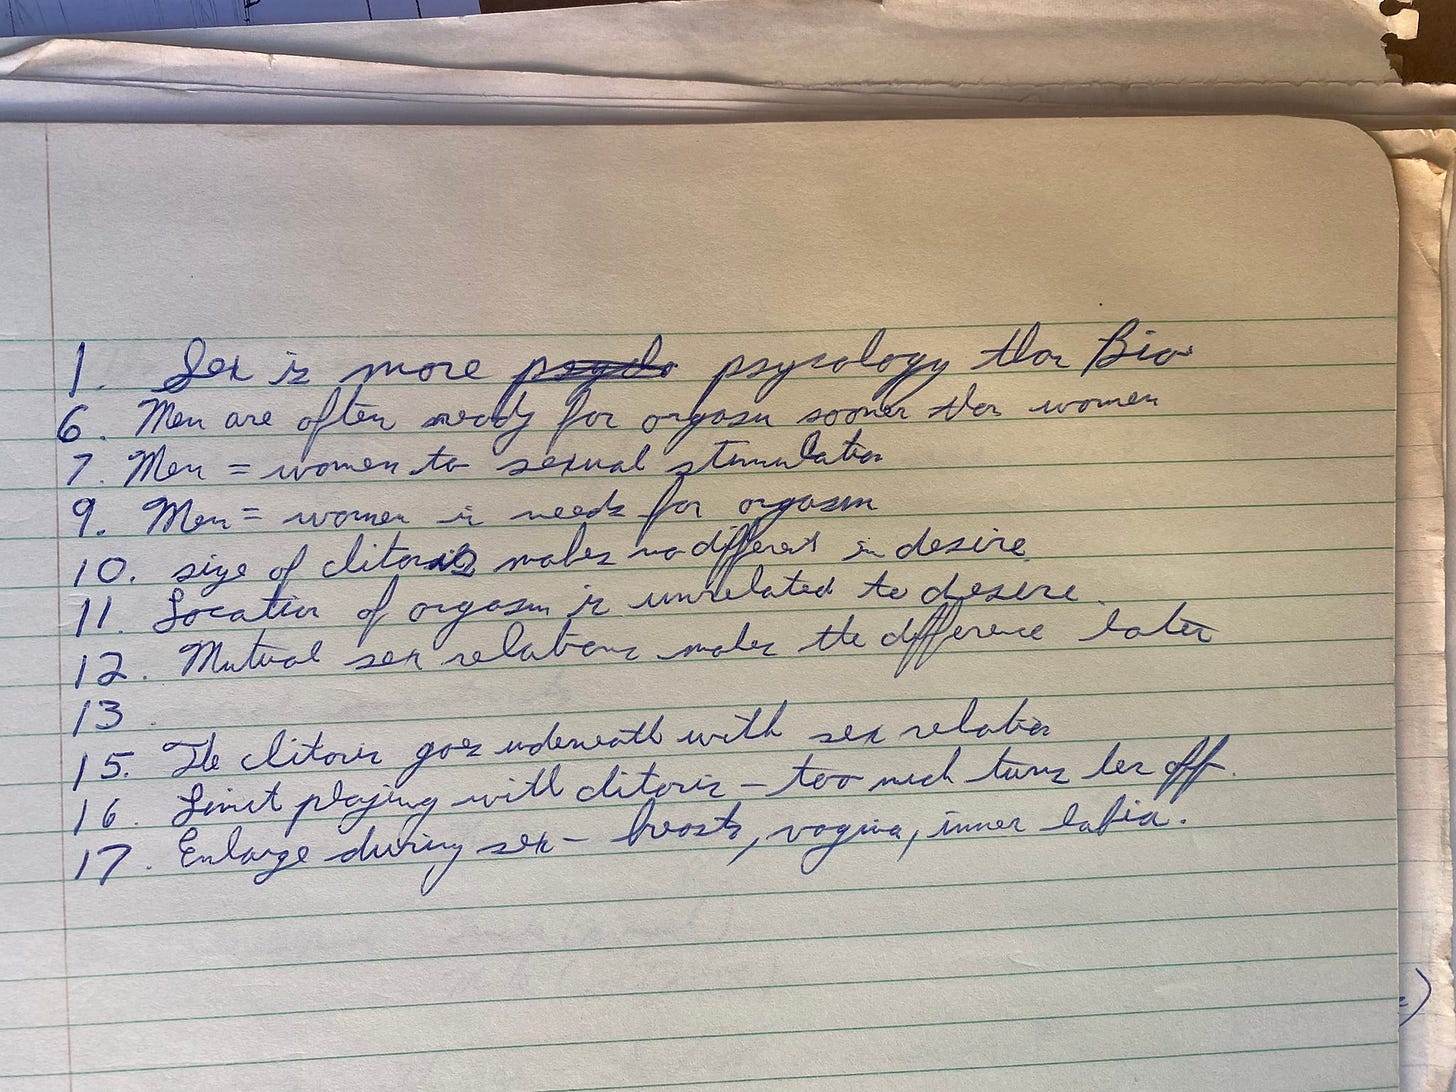 1. Sex is more psycology than Bio
6. Men are often ready for orgasm sooner than women
7. Men = women to sexual stimulation
9. Men = women in needs for orgasm
10. size of clitoris makes no different in desire
11. Location of orgasm is unrelated to desire.
12. Mutual sex relations makes the difference later
13.
15. The clitoris goes underneath with sex relation
16. Limit playing with clitoris - too much turns her off.
17. Enlarge during sex - breasts, vagina, inner labia.